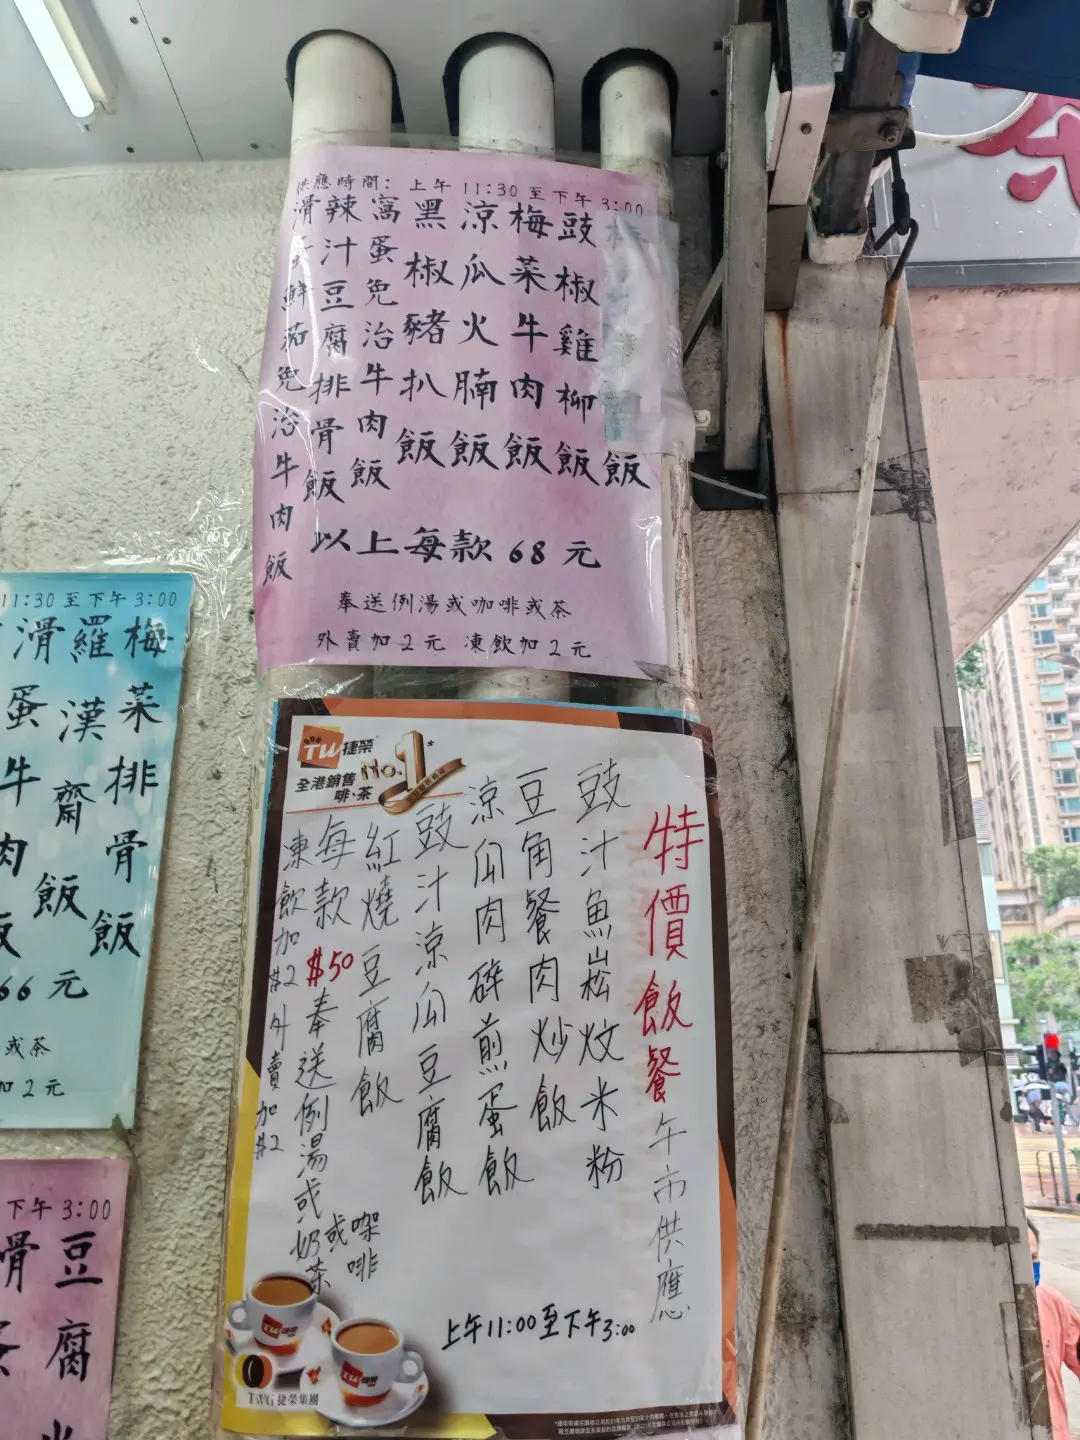 供應時間：上午11:30至下午3:00
飯
豉椒雞柳飯
梅菜牛肉飯
涼瓜火腩飯
黑椒豬扒飯
窩蛋免治牛肉飯
辣汁豆腐排骨飯
滑蛋鮮茄免治牛肉飯
以上每款68元
奉送例湯或咖啡或茶
外賣加2元 凍飲加2元
11:30至下午3:00
梅菜排骨飯
羅漢齋飯
滑蛋牛肉飯
66元
或茶
加2元
下午3:00
豆腐
骨
TW捷榮
全港銷售
No.1*
啡、茶
特價飯餐午市供應
豉汁魚崧炆米粉
豆角餐肉炒飯
涼瓜肉碎煎蛋飯
豉汁涼瓜豆腐飯
紅燒豆腐飯
每款$50奉送例湯或奶茶或啡
凍飲加$2外賣加$2
上午11:00至下午3:00
TW捷榮
TW捷榮
TWG捷榮集團